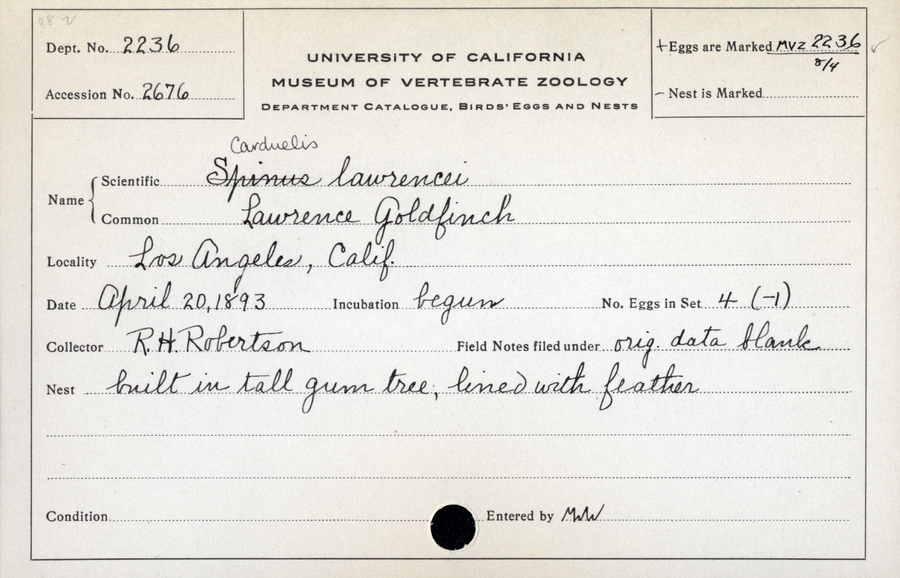 98 2
Dept. No. 2236
Accession No. 2676
UNIVERSITY OF CALIFORNIA
MUSEUM OF VERTEBRATE ZOOLOGY
DEPARTMENT CATALOGUE, BIRDS' EGGS AND NESTS
+ Eggs are Marked MVZ 2236 ✓
8/4
– Nest is Marked
Carduelis
Name { Scientific Spinus lawrencei
Common Lawrence Goldfinch
Locality Los Angeles, Calif.
Date April 20, 1893 Incubation begun No. Eggs in Set 4 (-1)
Collector R.H. Robertson Field Notes filed under orig. data blank
Nest built in tall gum tree, lined with feather
Condition Entered by MW